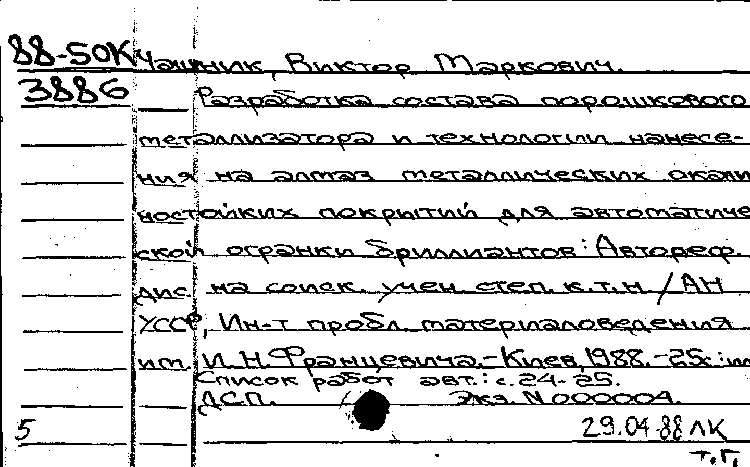 88-50К Чашник, Виктор Маркович.
3886 Разработка состава порошкового
металлизатора и технологии нанесе-
ния на алмаз металлических окали
ностойких покрытий для автоматиче
ской огранки бриллиантов: Автореф.
дис. на соиск. учен. степ. к.т.н / АН
УССР, Ин-т пробл. материаловедения
им. И.Н. Францевича.-Киев, 1988.-25с.:ил
Список работ авт.: с. 24-25.
ДСП. Экз. N 000004.
5 29.04.88 ЛК
Т.Г.